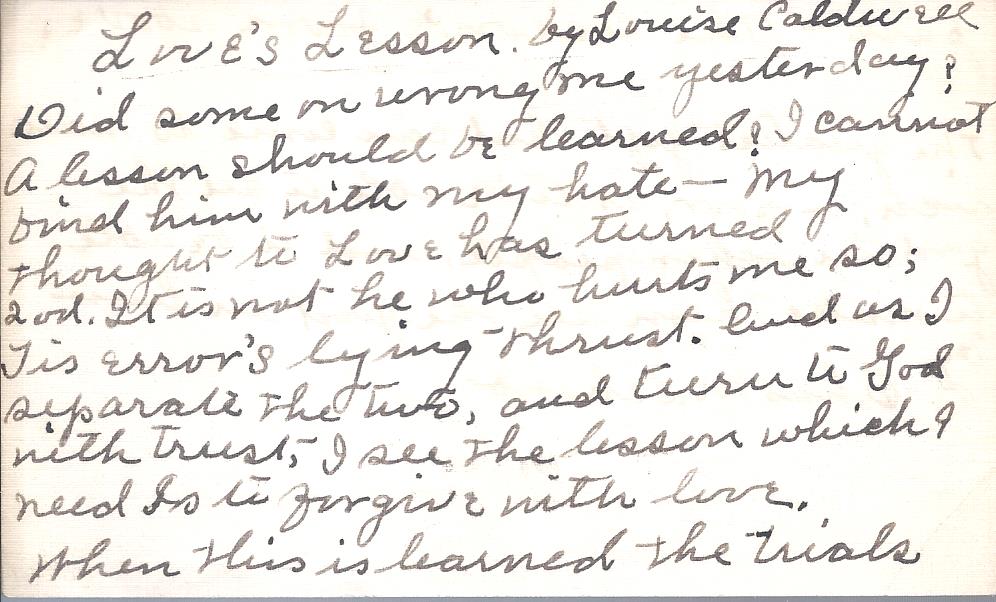 Love's Lesson. by Louise Caldwell
Did some on wrong me yesterday?
A lesson should be learned? I cannot
bind him with my hate — My
thought to Love has turned
2od. It is not he who hurts me so;
Tis error's lying thrust. And as I
separate the two, and turn to God
with trust, I see the lesson which I
need Is to forgive with love.
When this is learned the trials